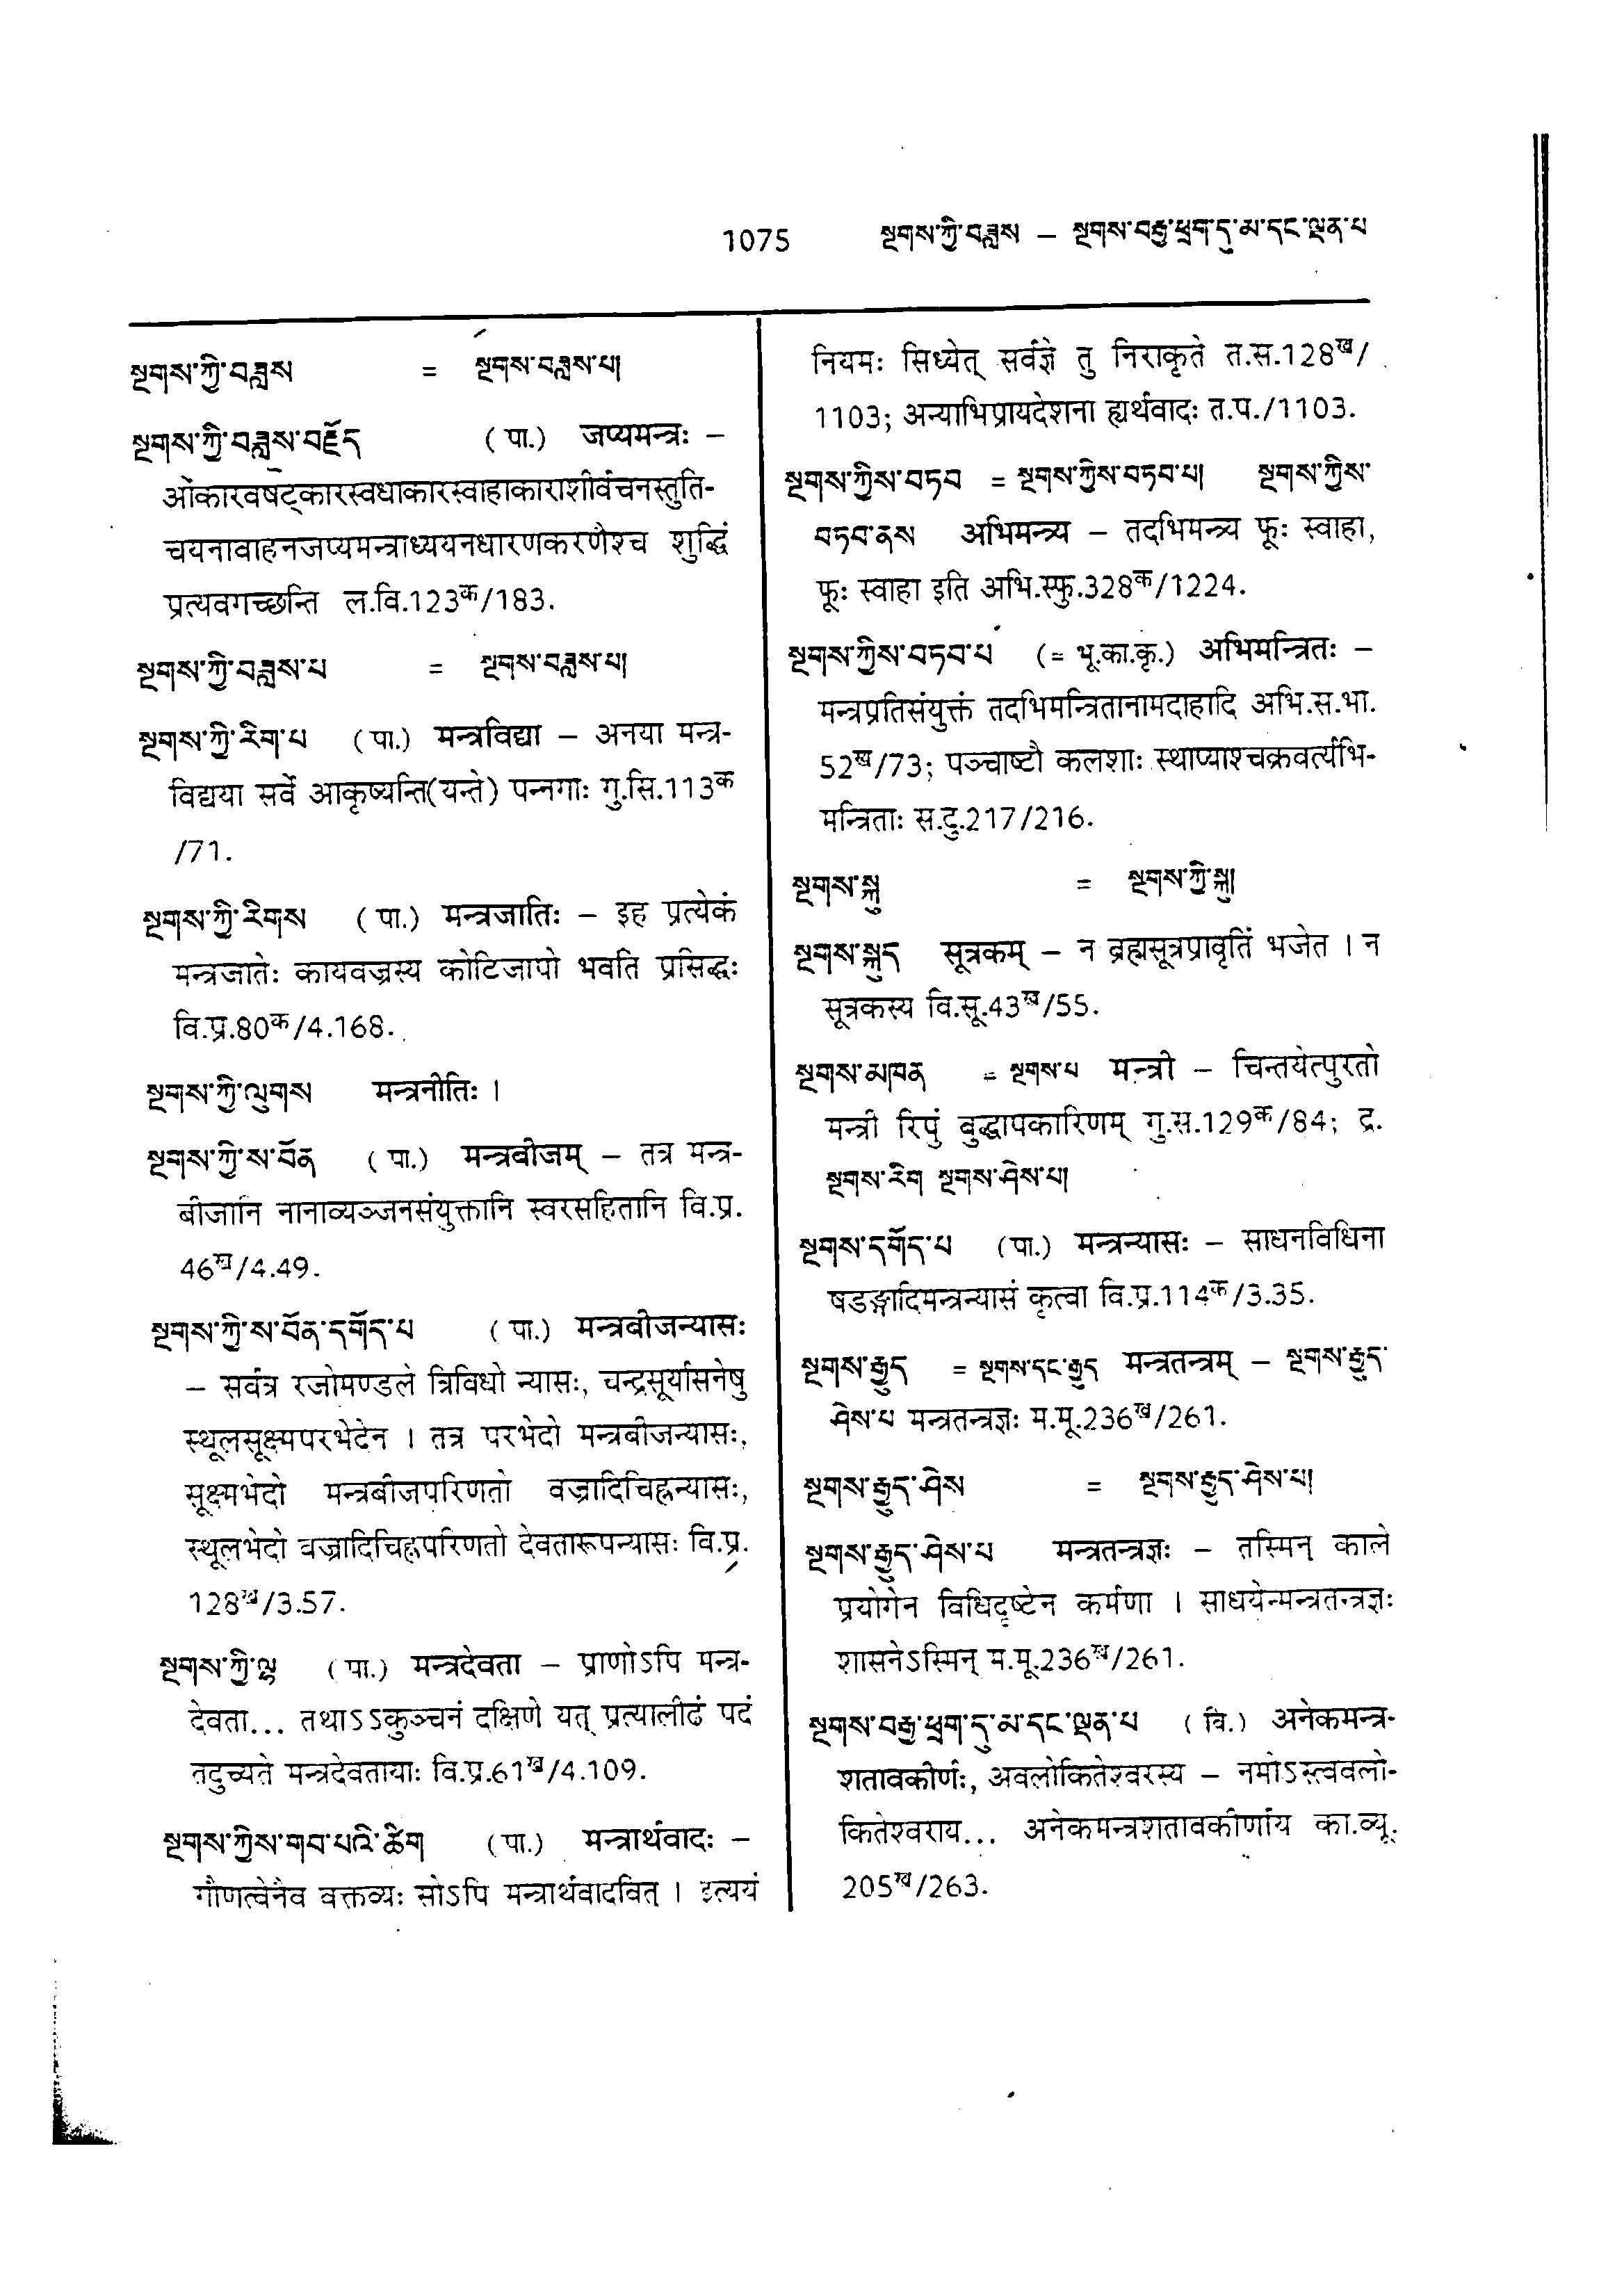 1075 སྔགས་ཀྱི་བཟླས – སྔགས་བརྒྱ་ཕྲག་དུ་མ་དང་ལྡན་པ
སྔགས་ཀྱི་བཟླས = སྔགས་བཟླས་པ།
སྔགས་ཀྱི་བཟླས་བརྗོད (पा.) जप्यमन्त्रः –
ओंकारवषट्कारस्वधाकारस्वाहाकाराशीर्वचनस्तुति-
चयनावाहनजप्यमन्त्राध्ययनधारणकरणैश्च शुद्धिं
प्रत्यवगच्छन्ति ल.वि.123क/183.
སྔགས་ཀྱི་བཟླས་པ = སྔགས་བཟླས་པ།
སྔགས་ཀྱི་རིག་པ (पा.) मन्त्रविद्या – अनया मन्त्र-
विद्यया सर्वे आकृष्यन्ति(यन्ते) पन्नगाः गु.सि.113क
/71.
སྔགས་ཀྱི་རིགས (पा.) मन्त्रजातिः – इह प्रत्येकं
मन्त्रजातेः कायवज्रस्य कोटिजापो भवति प्रसिद्धः
वि.प्र.80क/4.168.
སྔགས་ཀྱི་ལུགས मन्त्रनीतिः ।
སྔགས་ཀྱི་ས་བོན (पा.) मन्त्रबीजम् – तत्र मन्त्र-
बीजानि नानाव्यञ्जनसंयुक्तानि स्वरसहितानि वि.प्र.
46ख/4.49.
སྔགས་ཀྱི་ས་བོན་དགོད་པ (पा.) मन्त्रबीजन्यासः
– सर्वत्र रजोमण्डले त्रिविधो न्यासः, चन्द्रसूर्यासनेषु
स्थूलसूक्ष्मपरभेदेन । तत्र परभेदो मन्त्रबीजन्यासः,
सूक्ष्मभेदो मन्त्रबीजपरिणतो वज्रादिचिह्नन्यासः,
स्थूलभेदो वज्रादिचिह्नपरिणतो देवतारूपन्यासः वि.प्र.
128ख/3.57.
སྔགས་ཀྱི་ལྷ (पा.) मन्त्रदेवता – प्राणोऽपि मन्त्र-
देवता... तथाऽऽकुञ्चनं दक्षिणे यत् प्रत्यालीढं पदं
तदुच्यते मन्त्रदेवतायाः वि.प्र.61ख/4.109.
སྔགས་ཀྱིས་གབ་པའི་ཚིག (पा.) मन्त्रार्थवादः –
गौणत्वेनैव वक्तव्यः सोऽपि मन्त्रार्थवादवित् । इत्ययं
नियमः सिध्येत् सर्वज्ञे तु निराकृते त.स.128ख/
1103; अन्याभिप्रायदेशना ह्यर्थवादः त.प./1103.
སྔགས་ཀྱིས་བཏབ = སྔགས་ཀྱིས་བཏབ་པ། སྔགས་ཀྱིས་
བཏབ་ནས अभिमन्त्र्य – तदभिमन्त्र्य फूः स्वाहा,
फूः स्वाहा इति अभि.स्फु.328क/1224.
སྔགས་ཀྱིས་བཏབ་པ (= भू.का.कृ.) अभिमन्त्रितः –
मन्त्रप्रतिसंयुक्तं तदभिमन्त्रितानामदाहादि अभि.स.भा.
52ख/73; पञ्चाष्टौ कलशाः स्थाप्याश्चक्रवर्त्यभि-
मन्त्रिताः स.दु.217/216.
སྔགས་སྐུ = སྔགས་ཀྱི་སྐུ།
སྔགས་སྐུད सूत्रकम् – न ब्रह्मसूत्रप्रावृतिं भजेत । न
सूत्रकस्य वि.सू.43ख/55.
སྔགས་མཁན = སྔགས་པ मन्त्री – चिन्तयेत्पुरतो
मन्त्री रिपुं बुद्धापकारिणम् गु.स.129क/84; द्र.
སྔགས་རིག སྔགས་ཤེས་པ།
སྔགས་དགོད་པ (पा.) मन्त्रन्यासः – साधनविधिना
षडङ्गादिमन्त्रन्यासं कृत्वा वि.प्र.114क/3.35.
སྔགས་རྒྱུད = སྔགས་དང་རྒྱུད मन्त्रतन्त्रम् – སྔགས་རྒྱུད་
ཤེས་པ मन्त्रतन्त्रज्ञः म.मू.236ख/261.
སྔགས་རྒྱུད་ཤེས = སྔགས་རྒྱུད་ཤེས་པ།
སྔགས་རྒྱུད་ཤེས་པ मन्त्रतन्त्रज्ञः – तस्मिन् काले
प्रयोगेन विधिदृष्टेन कर्मणा । साधयेन्मन्त्रतन्त्रज्ञः
शासनेऽस्मिन् म.मू.236ख/261.
སྔགས་བརྒྱ་ཕྲག་དུ་མ་དང་ལྡན་པ (वि.) अनेकमन्त्र-
शतावकीर्णः, अवलोकितेश्वरस्य – नमोऽस्त्ववलो-
कितेश्वराय... अनेकमन्त्रशतावकीर्णाय का.व्यू.
205ख/263.